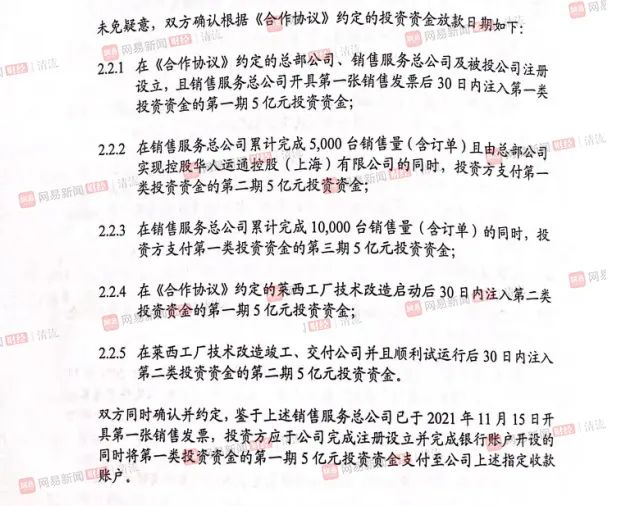 未免疑意，双方确认根据《合作协议》约定的投资资金放款日期如下：
2.2.1 在《合作协议》约定的总部公司、销售服务总公司及被投公司注册
设立，且销售服务总公司开具第一张销售发票后 30 日内注入第一类
投资资金的第一期 5 亿元投资资金；
2.2.2 在销售服务总公司累计完成 5,000 台销售量（含订单）且由总部公司
实现控股华人运通控股（上海）有限公司的同时，投资方支付第一
类投资资金的第二期 5 亿元投资资金；
2.2.3 在销售服务总公司累计完成 10,000 台销售量（含订单）的同时，投
资方支付第一类投资资金的第三期 5 亿元投资资金；
2.2.4 在《合作协议》约定的莱西工厂技术改造启动后 30 日内注入第二类
投资资金的第一期 5 亿元投资资金；
2.2.5 在莱西工厂技术改造竣工、交付公司并且顺利试运行后 30 日内注入
第二类投资资金的第二期 5 亿元投资资金。
双方同时确认并约定，鉴于上述销售服务总公司已于 2021 年 11 月 15 日开
具第一张销售发票，投资方应于公司完成注册设立并完成银行账户开设的
同时将第一类投资资金的第一期 5 亿元投资资金支付至公司上述指定收款
账户。
网易新闻 财经 清流